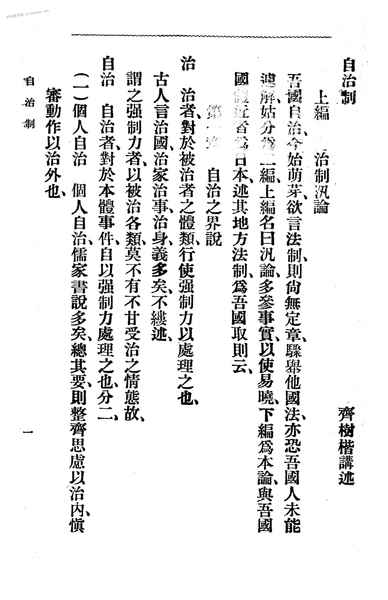 自治制
齊樹楷講述
上編 治制汎論
吾國自治、今始萌芽、欲言法制、則尙無定章、驟舉他國法、亦恐吾國人未能
解、姑分爲二編、上編名曰汎論、多參事實、以使易曉、下編爲本論、與吾國
國 近者爲日本、述其地方法制、爲吾國取則云、
第一章 自治之界說
治 治者、對於被治者之體類、行使强制力、以處理之也、
古人言治國治家治事治身、義多矣、不縷述、
謂之强制力者、以被治各類、莫不有不甘受治之情態故、
自治 自治者、對於本體事件、自以强制力處理之也、分二、
(一)個人自治 個人自治、儒家書說多矣、總其要、則整齊思慮以治內、愼
審動作以治外也、
自治制
一